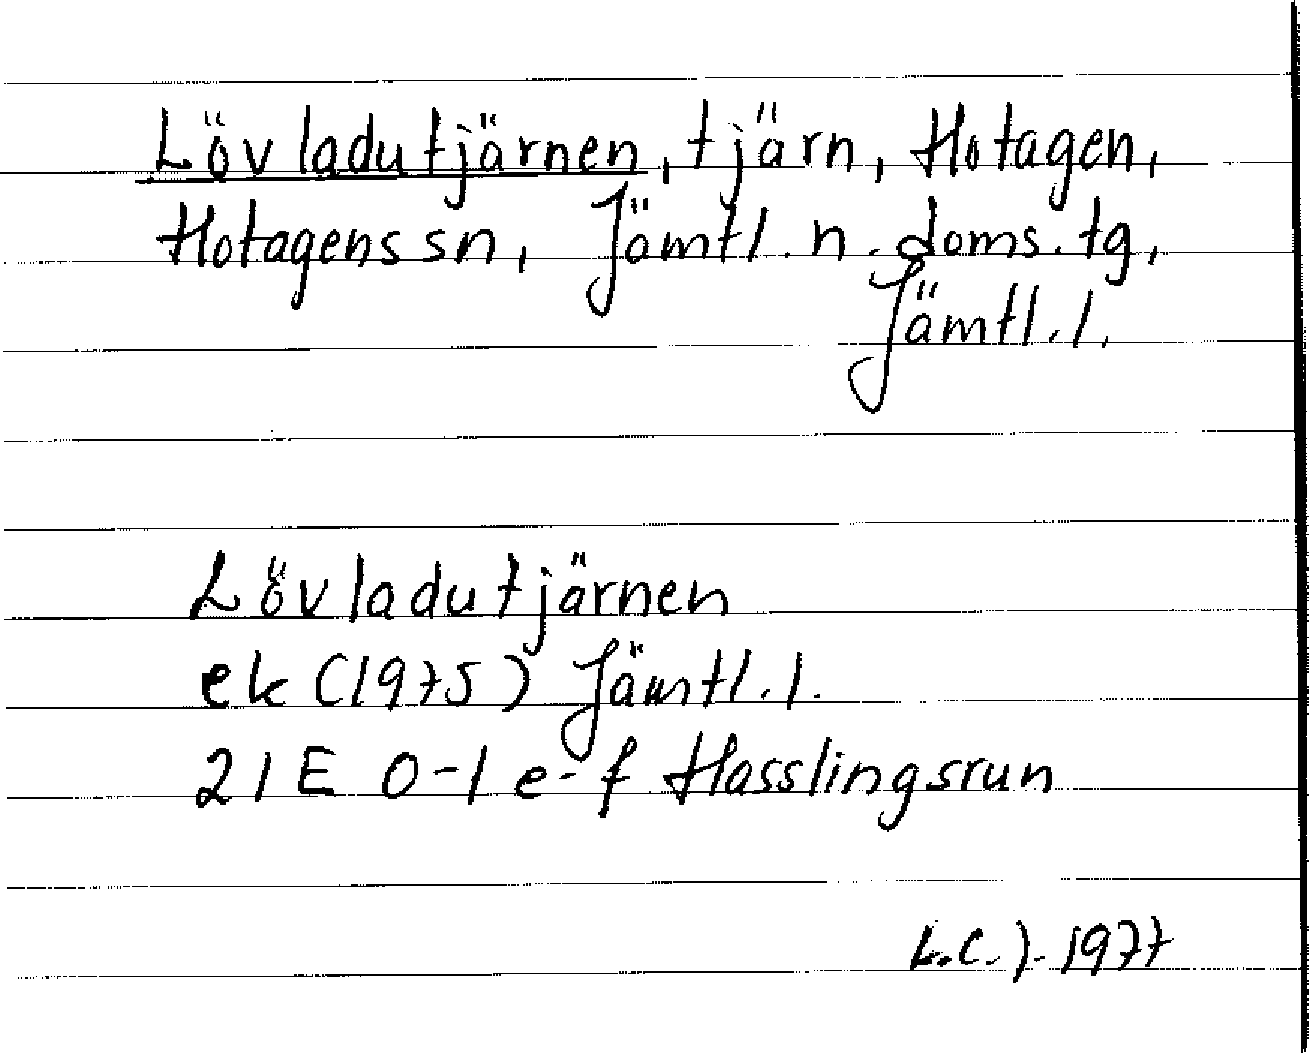 Lövladutjärnen, tjärn, Hotagen,
Hotagens sn, Jämtl. n. doms. tg,
Jämtl. l.
Lövladutjärnen
ek (1975) Jämtl. l.
21E 0-1 e-f Hasslingsrun
L.C.J. 1977